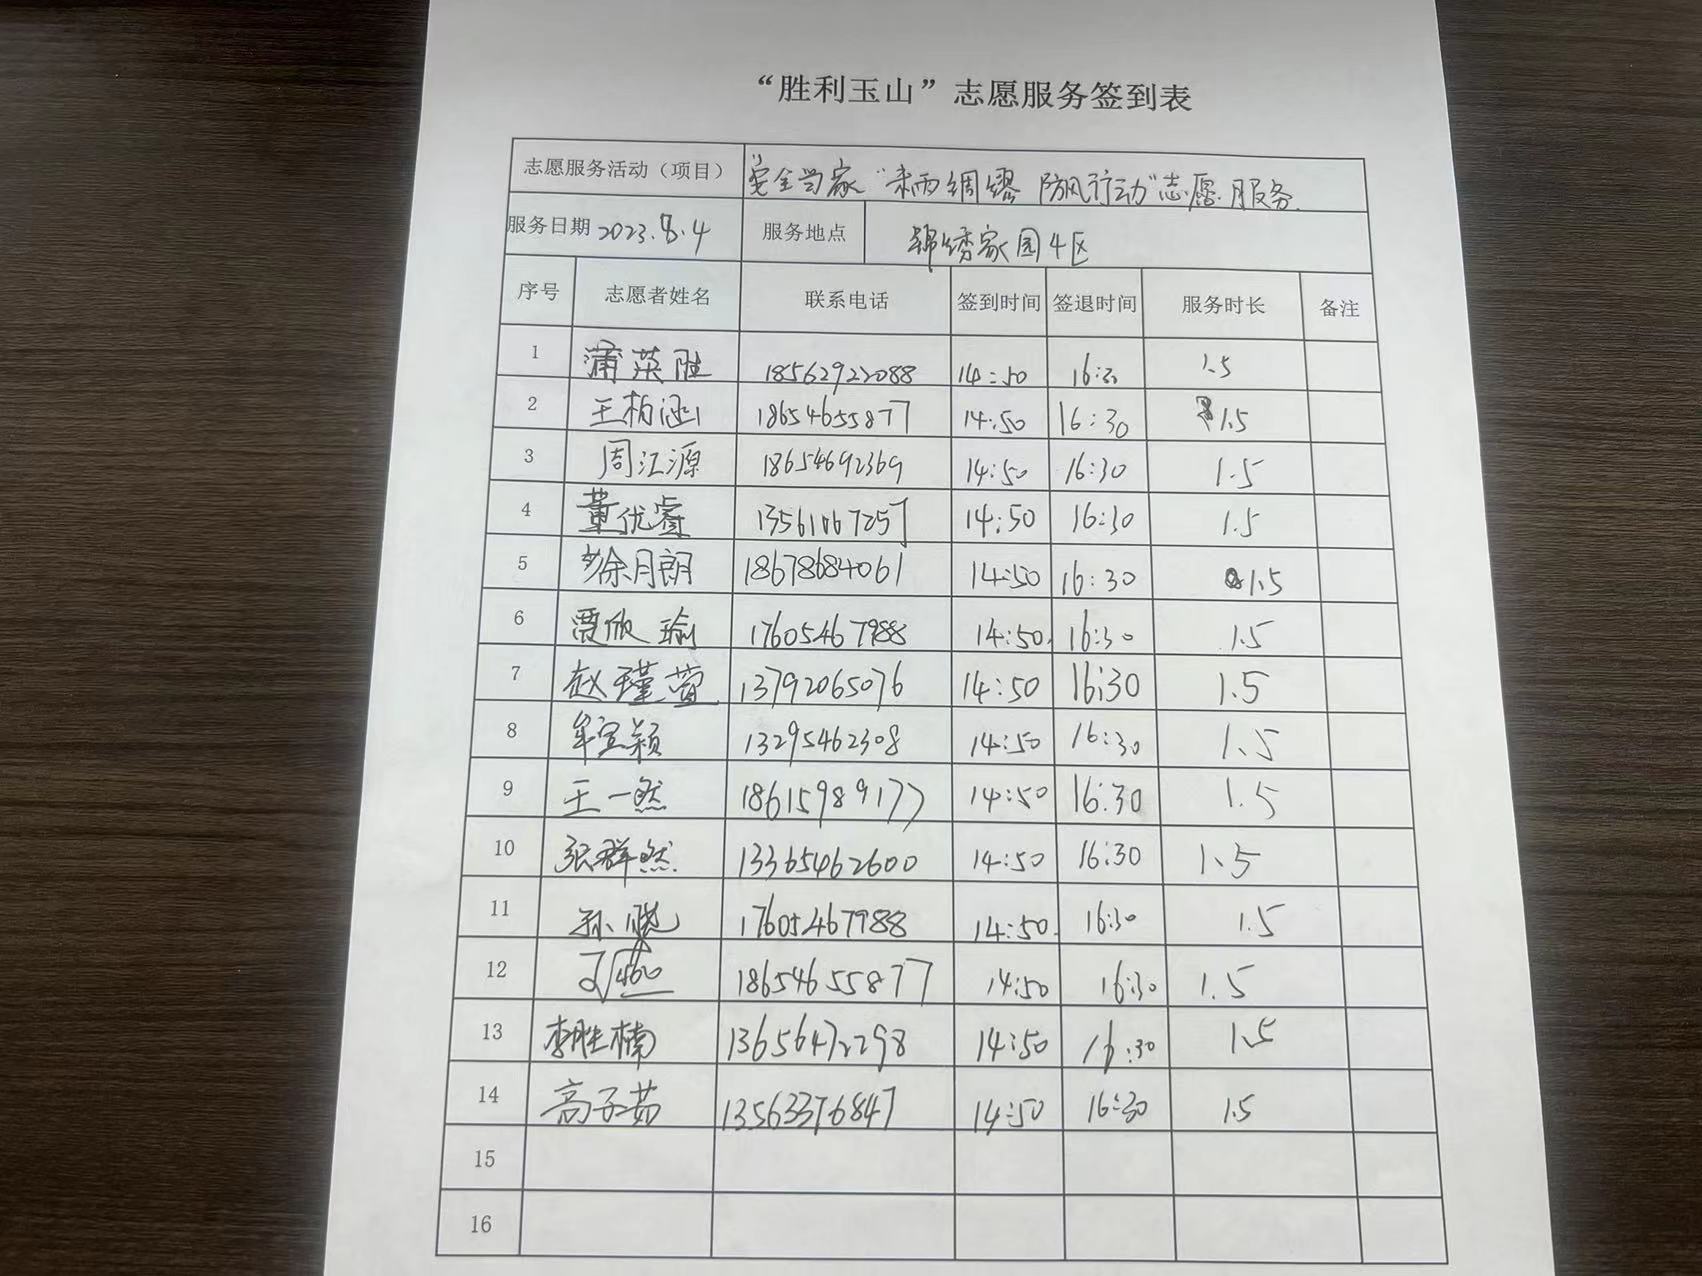 “胜利玉山”志愿服务签到表
志愿服务活动（项目） 安全当家“未雨绸缪 防风行动”志愿服务
服务日期 2023.8.4 服务地点 锦绣家园4区
序号 志愿者姓名 联系电话 签到时间 签退时间 服务时长 备注
1 蒲英胜 18562922088 14:50 16:30 1.5
2 王柏涵 18654655877 14:50 16:30 1.5
3 周江源 18654692369 14:50 16:30 1.5
4 董优睿 13561067257 14:50 16:30 1.5
5 徐月朗 18678684061 14:50 16:30 1.5
6 贾欣瑜 17605467988 14:50 16:30 1.5
7 赵瑾萱 13792065076 14:50 16:30 1.5
8 牟宣颖 13295462308 14:50 16:30 1.5
9 王一然 18615989177 14:50 16:30 1.5
10 张群然 13365462600 14:50 16:30 1.5
11 孙晓 17605467988 14:50 16:30 1.5
12 18654655877 14:50 16:30 1.5
13 李胜楠 13656472298 14:50 16:30 1.5
14 高子茹 13563376847 14:50 16:30 1.5
15
16